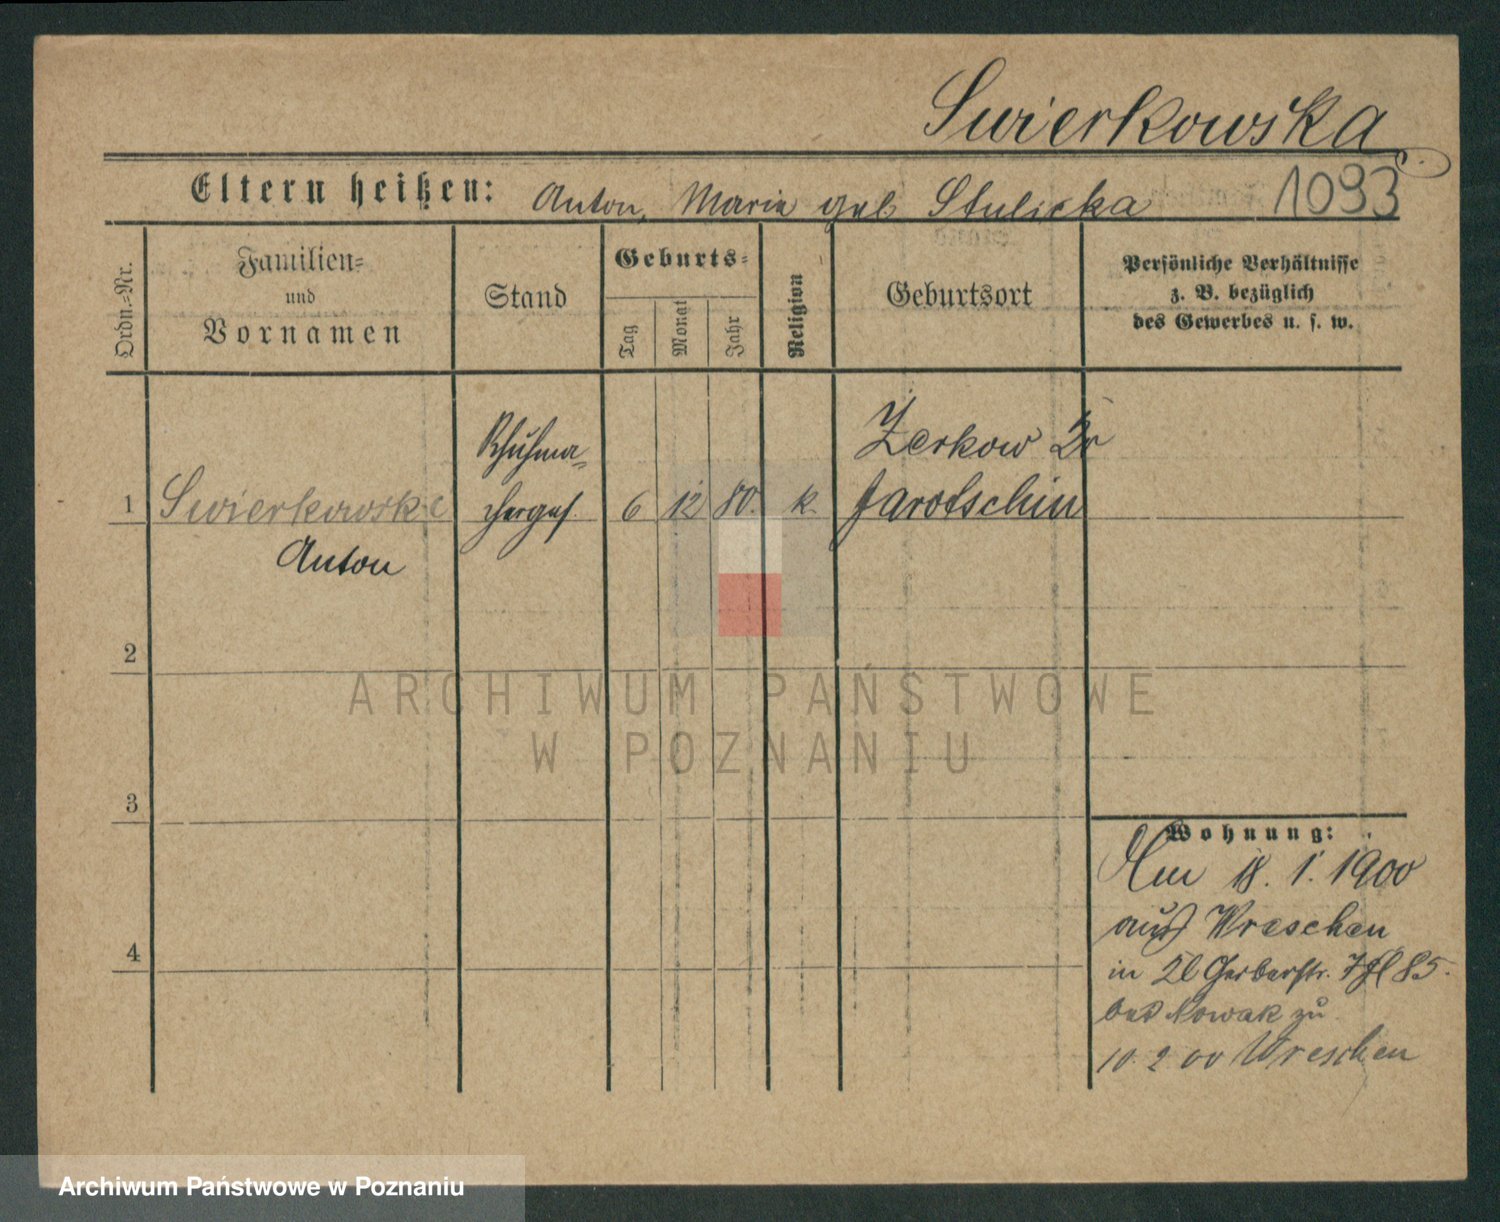 Swierkowska
Eltern heißen: Anton, Marie geb Stulicka 1093
Ordn.=Nr.
Familien=
und
Vornamen
Stand
Geburts=
Tag
Monat
Jahr
Religion
Geburtsort
Persönliche Verhältnisse
z. B. bezüglich
des Gewerbes u. s. w.
Zerkow Kr
Schuhma=
1 Swierkowski cherges. 6 12 80. k. Jarotschin
Anton
2
ARCHIWUM PAŃSTWOWE
W POZNANIU
3
Wohnung:
Am 18. 1. 1900
aus Wreschen
in Gerberstr. 7 85.
bei Nowak zu
10. 2 00 Wreschen
4
Archiwum Państwowe w Poznaniu